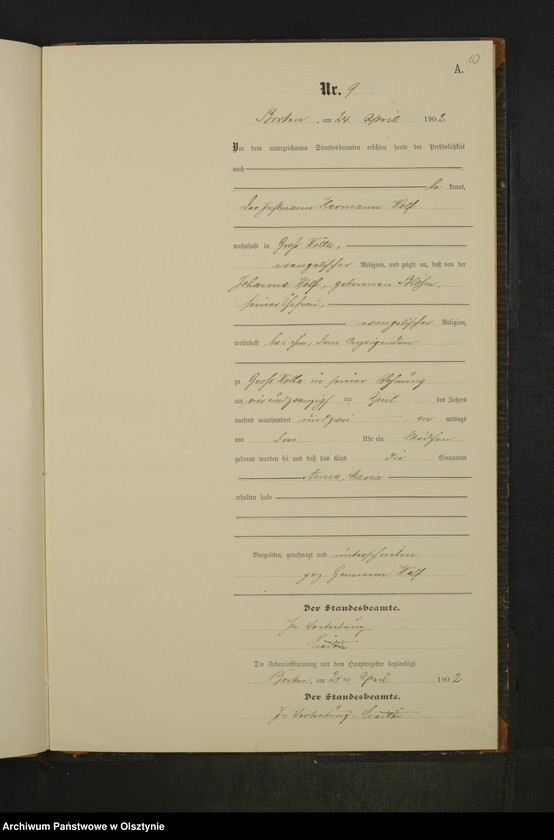 A.
Nr. 9
Borken, am 24 April 1902
Vor dem unterzeichneten Standesbeamten erschien heute der Persönlichkeit
nach
be kannt,
der Instmann Hermann Wolf
wohnhaft in Groß Wolla,
evangelischer Religion, und zeigte an, daß von der
Johanna Wolf, geborenen
seiner Ehefrau,
evangelischer Religion,
wohnhaft bei ihm, dem Anzeigenden
zu Groß Wolla in seiner Wohnung
am vier und zwanzigsten April des Jahres
tausend neunhundert und zwei vor mittags
um drei Uhr ein Mädchen
geboren worden sei und daß das Kind die Vornamen
Anna, Maria
erhalten habe
Vorgelesen, genehmigt und unterschrieben
gez. Hermann Wolf
Der Standesbeamte.
In Vertretung
Die Uebereinstimmung mit dem Hauptregister beglaubigt
Borken, am 24 ten April 1902
Der Standesbeamte.
In Vertretung
Archiwum Państwowe w Olsztynie